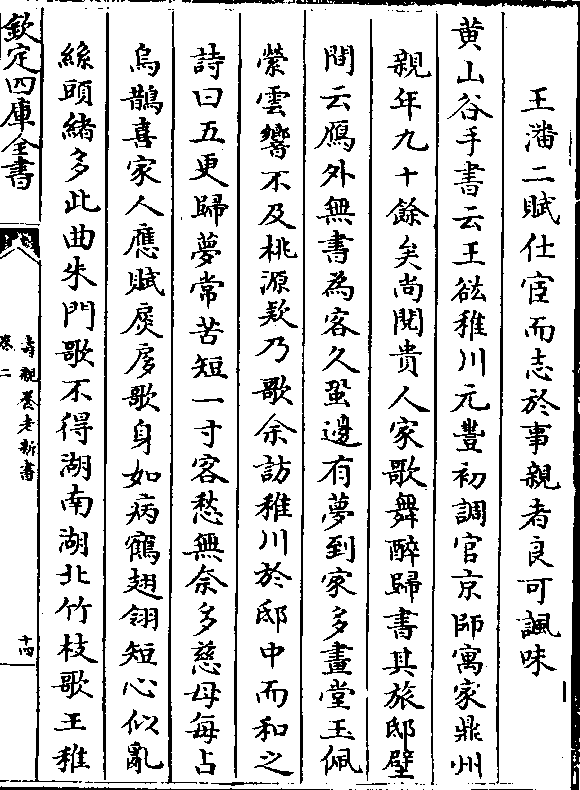 王潘二賦仕宦而志於事親者良可諷味
黄山谷手書云王㳒稚川元豐初調官京師寓家鼎州
親年九十餘矣尚閱貴人家歌舞醉歸書其旅邸壁
間云鴈外無書為客久蛩邊有夢到家多畫堂玉佩
縈雲響不及桃源欵乃歌余訪稚川於邸中而和之
詩曰五更歸夢常苦短一寸客愁無奈多慈母每占
烏鵲喜家人應賦扊扅歌身如病鶴翅翎短心似亂
絲頭緒多此曲朱門歌不得湖南湖北竹枝歌王稚
欽定四庫全書
壽親養老新書
卷二
十四